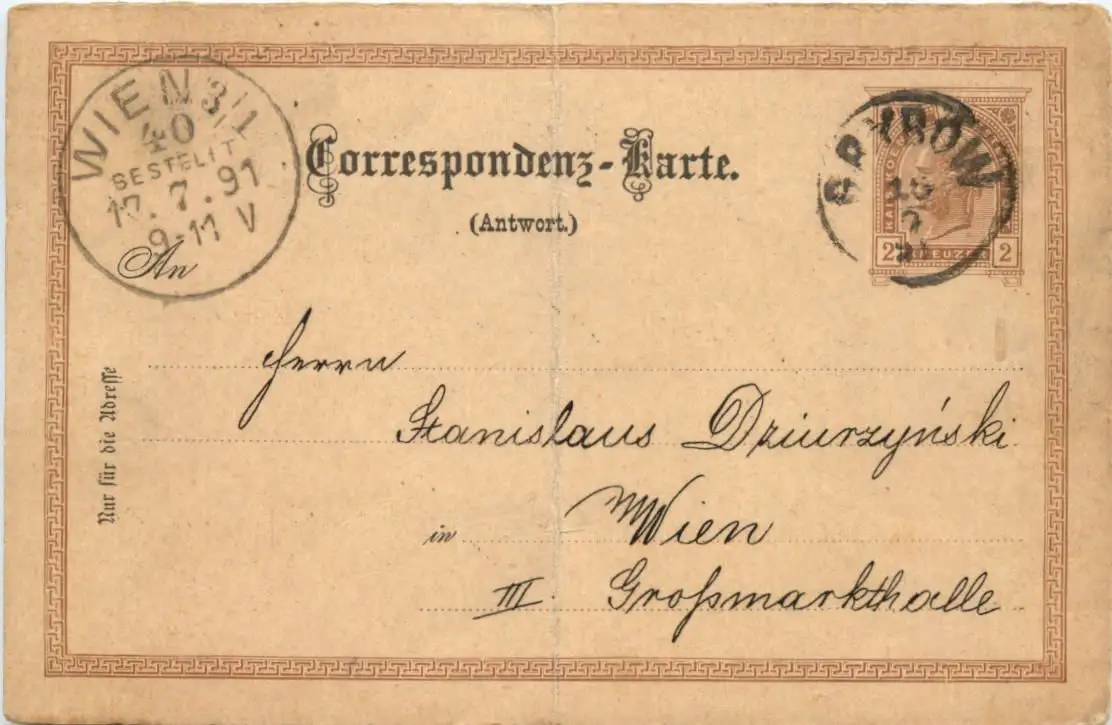 WIEN 3/1
40
BESTELLT
17.7.91
9-11 V
Correspondenz-Karte.
(Antwort.)
GRYBÓW
2 KREUZER 2
An
Herrn
Stanislaus Dziurzyński
in Wien
III. Großmarkthalle
Nur für die Adresse